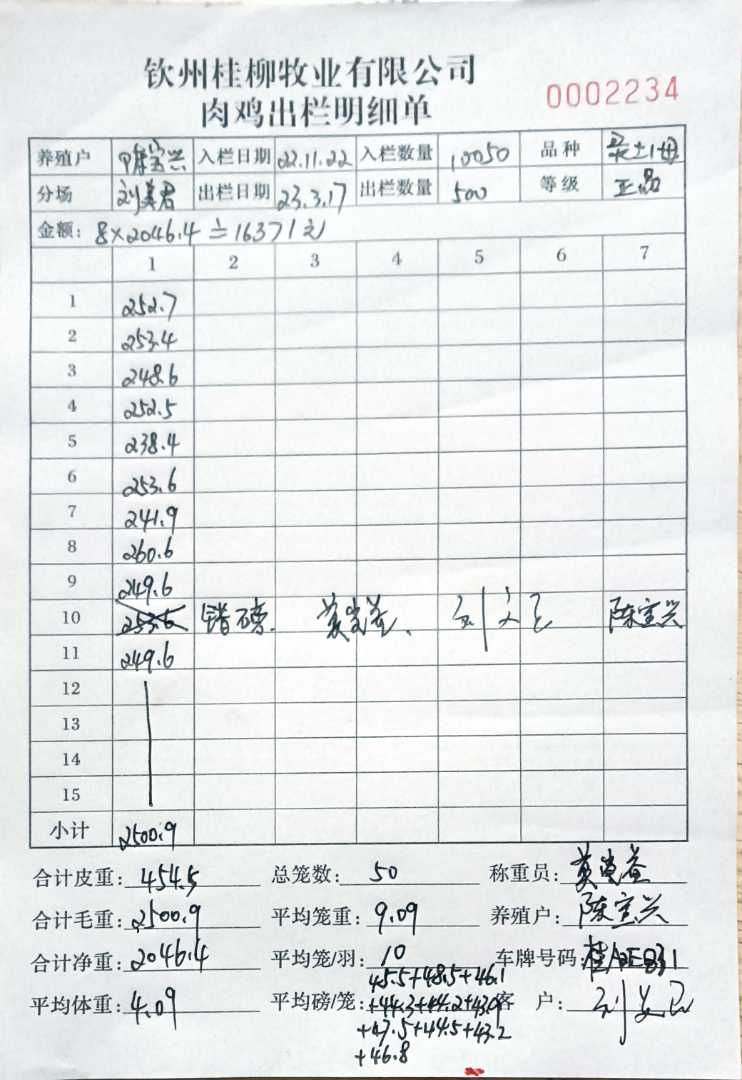 钦州桂柳牧业有限公司
肉鸡出栏明细单
0002234
养殖户 陈宝兴 入栏日期 22.11.22 入栏数量 10050 品种
分场 刘美君 出栏日期 23.3.17 出栏数量 500 等级 正品
金额: 8×2046.4≐16371元
1 2 3 4 5 6 7
1 252.7
2 253.4
3 248.6
4 252.5
5 238.4
6 253.6
7 241.9
8 260.6
9 249.6
10 253.6 错磅. 陈宝兴
11 249.6
12
13
14
15
小计 2500.9
合计皮重: 454.5 总笼数: 50 称重员:
合计毛重: 2500.9 平均笼重: 9.09 养殖户: 陈宝兴
合计净重: 2046.4 平均笼/羽: 10 车牌号码:
平均体重: 4.09 平均磅/笼: 45.5+48.5+46.1 客 户:
+44.3+44.2+43.9
+47.5+44.5+43.2
+46.8